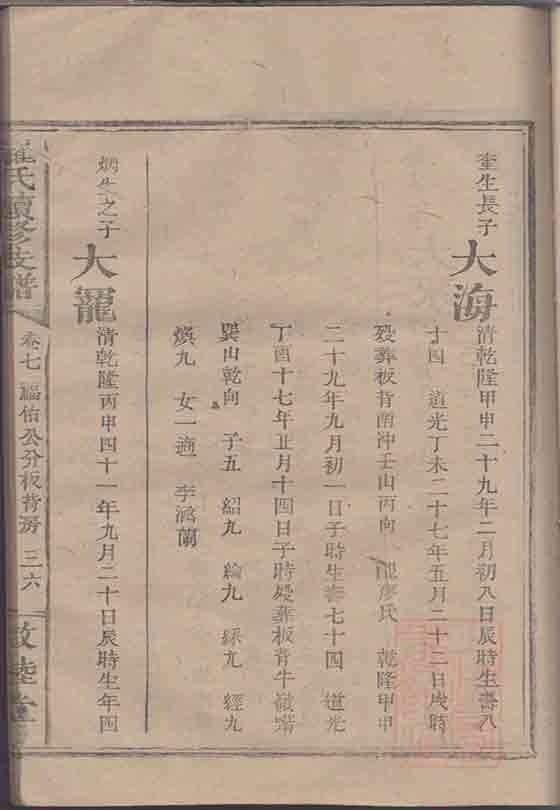 奎生長子
大海
清乾隆甲申二十九年二月初八日辰時生壽八
十四 道光丁未二十七年五月二十二日戌時
歿葬板背南冲壬山丙向 配廖氏 乾隆甲申
二十九年九月初一日子時生壽七十四 道光
丁酉十七年丑月十四日子時歿葬板背牛嶺
巽山乾向 子五 紹九 綸九 綵九 經九
煥九 女一適 李鴻蘭
炳生之子
大龍
清乾隆丙申四十一年九月二十日辰時生年四
氏續修支譜
卷七 福佑公分板背房 三六
敦睦堂